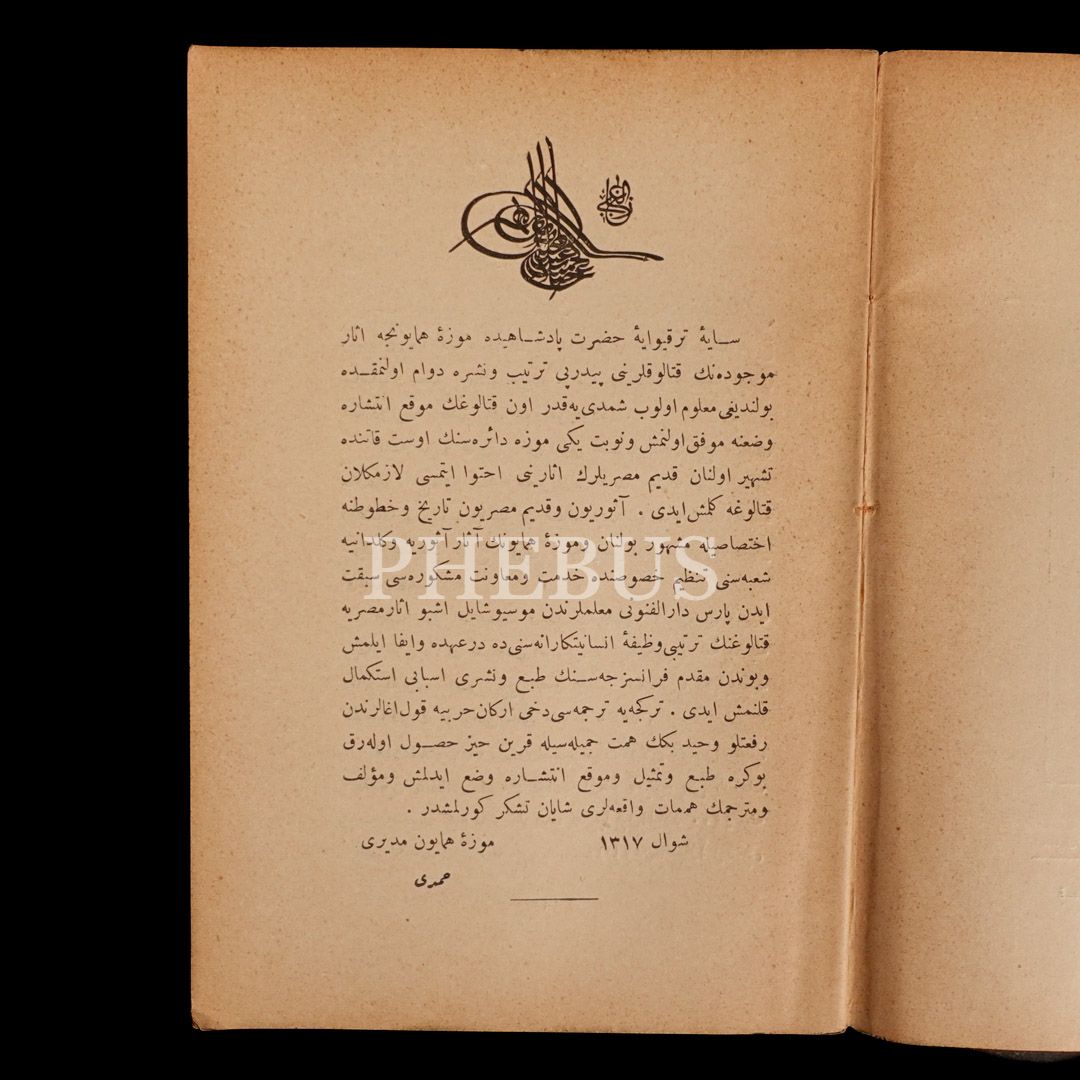 الغازی
سـایهٔ ترقیوایهٔ حضرت پادشـاهیده موزهٔ همایونجه اثار
موجوده‌نك قتالوقلرینی پیدرپی ترتیب ونشره دوام اولنمقـده
بولندیغی معلوم اولوب شمدی‌یه‌قدر اون قتالوغك موقع انتشاره
وضعنه موفق اولنمش ونوبت یکی موزه دائره‌سنك اوست قاتنده
تشهیر اولنان قدیم مصریلرك اثارینی احتوا ایتمسی لازمکلان
قتالوغه کلمش ایدی . آثوریون وقدیم مصریون تاریخ وخطوطنه
اختصاصیله مشهور بولنان وموزهٔ همایونك آثار آثوریه وکلدانیه
PHEBUS
شعبه‌سنی تنظیم خصوصنده خدمت ومعاونت مشکوره‌سی سبقت
ایدن پارس دارالفنونی معلملرندن موسیو شایل اشبو اثار مصریه
قتالوغنك ترتیبی وظیفهٔ انسانیتکارانه‌سنی‌ده درعهده وایفا ایلمش
وبوندن مقدم فرانسزجه‌سـنك طبع ونشری اسبابی استکمال
قلنمش ایدی . ترکجه‌یه ترجمه‌سی‌دخی ارکان حربیه قول اغالرندن
رفعتلو وحید بکك همت جمیله‌سیله قرین حیز حصـول اوله‌رق
بوکره طبع وتمثیل وموقع انتشـاره وضع ایدلمش ومؤلف
ومترجمك همـمات واقعه‌لری شایان تشکر کورلمشدر .
شوال ۱۳۱۷ موزهٔ همایون مدیری
حمدی